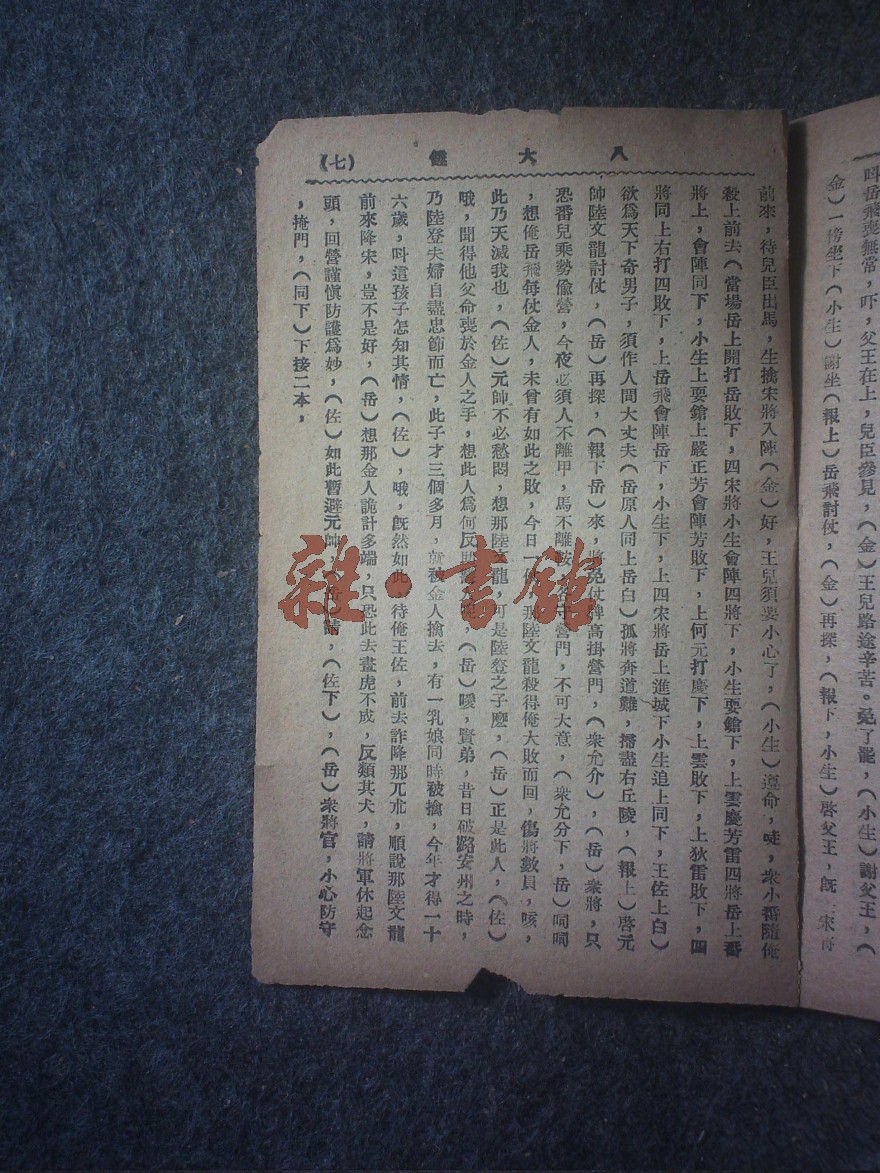 叫岳飛喪無常，吓，父王在上，兒臣參見，（金）王兒路途辛苦。免了罷，（小生）謝父王，（
金）一傍坐下（小生）謝坐（報上）岳飛討仗，（金）再探，（報下，小生）啓父王，旣
八大錘
（七）
前來，待兒臣出馬，生擒宋將入陣（金）好，王兒須要小心了，（小生）遵命，唗，衆小番隨俺
殺上前去（當場岳上開打岳敗下，四宋將小生會陣四將下，小生耍鎗下，上雲慶芳雷四將岳上番
將上，會陣同下，小生上耍鎗上嚴正芳會陣芳敗下，上何元打慶下，上雲敗下，上狄雷敗下，四
將同上右打四敗下，上岳飛會陣岳下，小生下，上四宋將岳上進城下小生追上同下，王佐上白）
欲爲天下奇男子，須作人間大丈夫（岳原人同上岳白）孤將奔道難，掃盡右丘陵，（報上）啓元
帥陸文龍討仗，（岳）再探，（報下岳）來，將免仗牌高掛營門，（衆允介），（岳）衆將，只
恐番兒乘勢偸營，今夜必須人不離甲，馬不離鞍，各守營門，不可大意，（衆允分下，岳）呵呵
，想俺岳飛每仗金人，未曾有如此之敗，今日一仗，那陸文龍殺得俺大敗而回，傷將數員，咳，
此乃天滅我也，（佐）元帥不必愁悶，想那陸文龍，可是陸登之子麽，（岳）正是此人，（佐）
哦，聞得他父命喪於金人之手，想此人爲何反，（岳）噯，賢弟，昔日破路安州之時，
乃陸登夫婦自盡忠節而亡，此子才三個多月，就被金人擒去，有一乳娘同時被擒，今年才得一十
六歲，呌這孩子怎知其情，（佐），哦，旣然如此，待俺王佐，前去詐降那兀朮，順說那陸文龍
前來降宋，豈不是好，（岳）想那金人詭計多端，只恐此去畫虎不成，反類其犬，請將軍休起念
頭，回營謹愼防護爲妙，（佐）如此暫避元帥，（岳）請，（佐下），（岳）衆將官，小心防守
，掩門，（同下）下接二本，
雜·書館